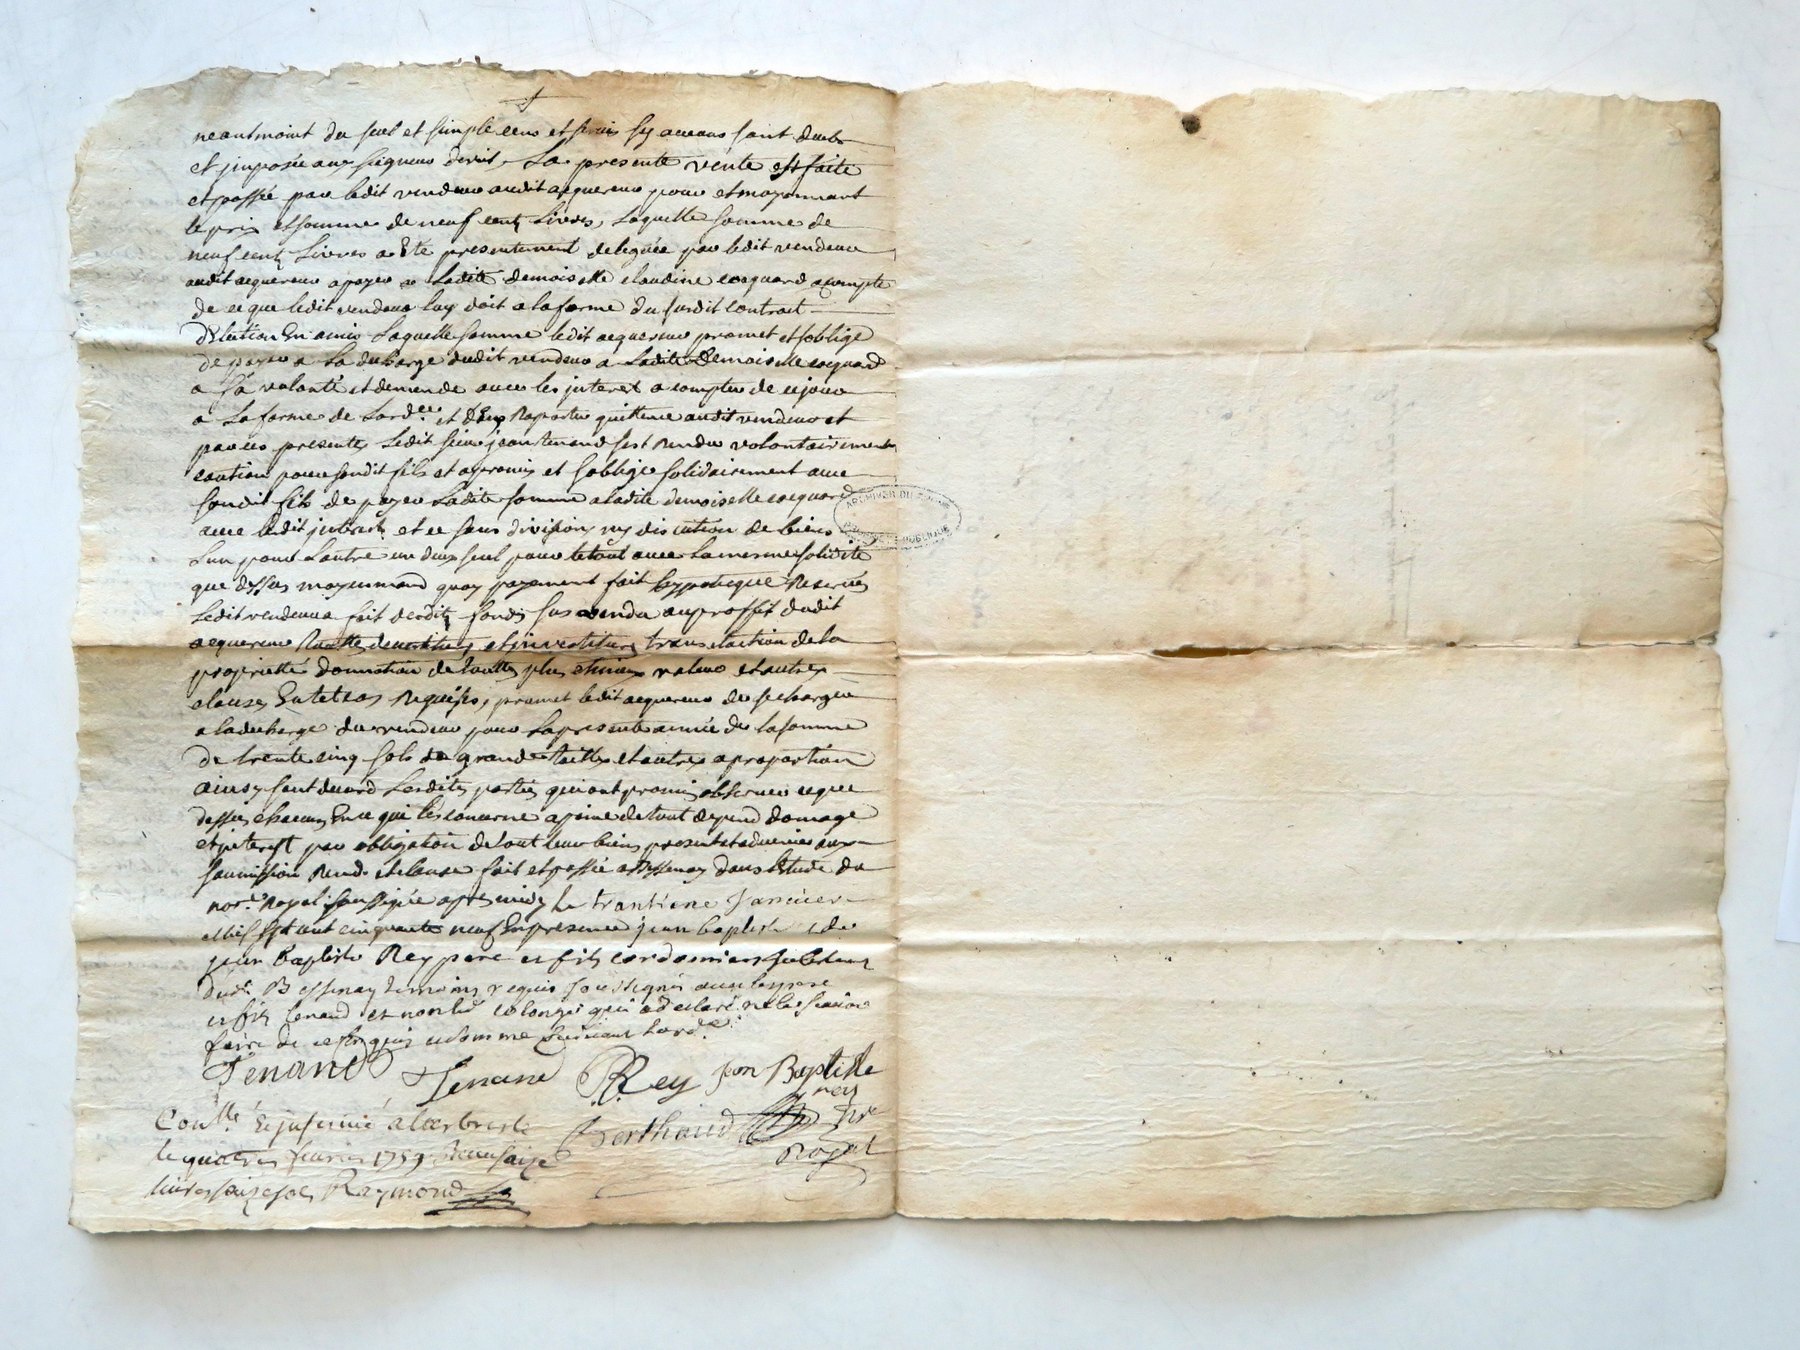 neantmoint du seul et simple cens et servis sy aucuns sont deubs
et jmposée aux seigneur direct, La presente vente est faite
et passée par ledit vendeur audit acquereur pour et moyennant
le prix et somme de neuf cents Livres, Laquelle somme de
neuf cents Livres a Eté presentement deleguée par ledit vendeur
audit acquereur a payer a Ladite demoiselle claudine coequard acompte
de ce que ledit vendeur luy doit a la forme du susdit contract
Délection En amis Laquelle somme ledit acquereur promet et soblige
de payer a La decharge dudit vendeur a Ladite Demoiselle coequard
a sa volonté et demende avec les jnteret a compter de ce jour
a La forme de Lord.ce et d'En Raporter quittence audit vendeur et
par ces presentes Ledit sieur jean tenand sest Rendu volontairement
caution pour sondit fils et a promis et soblige solidairement avec
sondit fils de payer Ladite somme a ladite demoiselle coequard
avec ledit jnterests et ce sans division ny discution de biens
L'un pour Lautre un deux seul pour le tout avec La mesme solidité
que dessus moyennand quoy payement fait hypotecque Reservés
Ledit vendeur a fait desdits fonds sus vendu au proffit dudit
acquereur toutte devestitures et jnvestitures translaction de la
proprietté donnation de touttes plus et mieux valeur et autres
clauses En tel cas Requises, promet ledit acquereur de se charger
a la decharge du vendeur pour La presente année de la somme
de trente cinq sols de grande tailles et autres a proportion
ainsy sont d'accord Lesdites parties qui ont promis observer ce que
dessus chacuns En ce qui les concerne a peine de tout depend domage
et jnterest par obligation de tout leur biens present et advenir aux
soumission Rend. et clause fait et passée a Bessenay dans L'Etude du
no.re Royal soussigné apres midy le trantieme Janvier
Mil sept cent cinquante neuf En presence de jean baptiste et de
jean Baptiste Rey pere et fils cordonniers habitant
dud.t Bessenay temoins requis soussignés avec lesd. pere
et fils Tenand et non led. colonges qui a declaré ne le scavoir
faire de ce enquis et somme suivant Lord.ce
Tenand Tenand Rey Jean Baptiste
rey
Berthaud no.re
Royal
Con.llé & jnsinué a Larbresle
le quatre fevrier 1759 Receu saize
livres saize sols Raymond
ARCHIVES DU